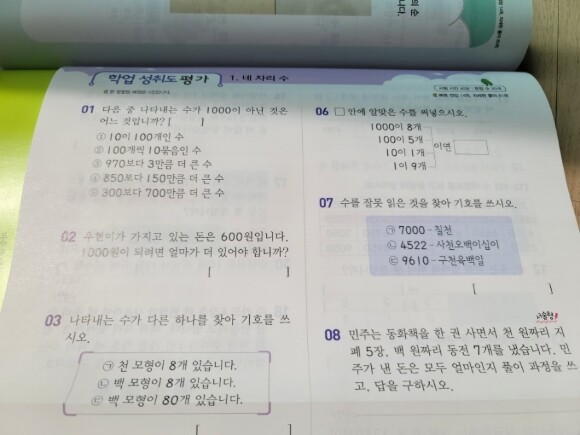 학업 성취도 평가
1. 네 자리 수
01 다음 중 나타내는 수가 1000이 아닌 것은
어느 것입니까? [ ]
① 10이 100개인 수
② 100개씩 10묶음인 수
③ 970보다 3만큼 더 큰 수
④ 850보다 150만큼 더 큰 수
⑤ 300보다 700만큼 더 큰 수
02 우현이가 가지고 있는 돈은 600원입니다.
1000원이 되려면 얼마가 더 있어야 합니까?
[ ]
03 나타내는 수가 다른 하나를 찾아 기호를 쓰
시오.
㉠ 천 모형이 8개 있습니다.
㉡ 백 모형이 8개 있습니다.
㉢ 백 모형이 80개 있습니다.
[ ]
06 □ 안에 알맞은 수를 써넣으시오.
1000이 8개
100이 5개
10이 1개
1이 9개
이면
07 수를 잘못 읽은 것을 찾아 기호를 쓰시오.
㉠ 7000 - 칠천
㉡ 4522 - 사천오백이십이
㉢ 9610 - 구천육백일
[ ]
서술형
08 민주는 동화책을 한 권 사면서 천 원짜리 지
폐 5장, 백 원짜리 동전 7개를 냈습니다. 민
주가 낸 돈은 모두 얼마인지 풀이 과정을 쓰
고, 답을 구하시오.